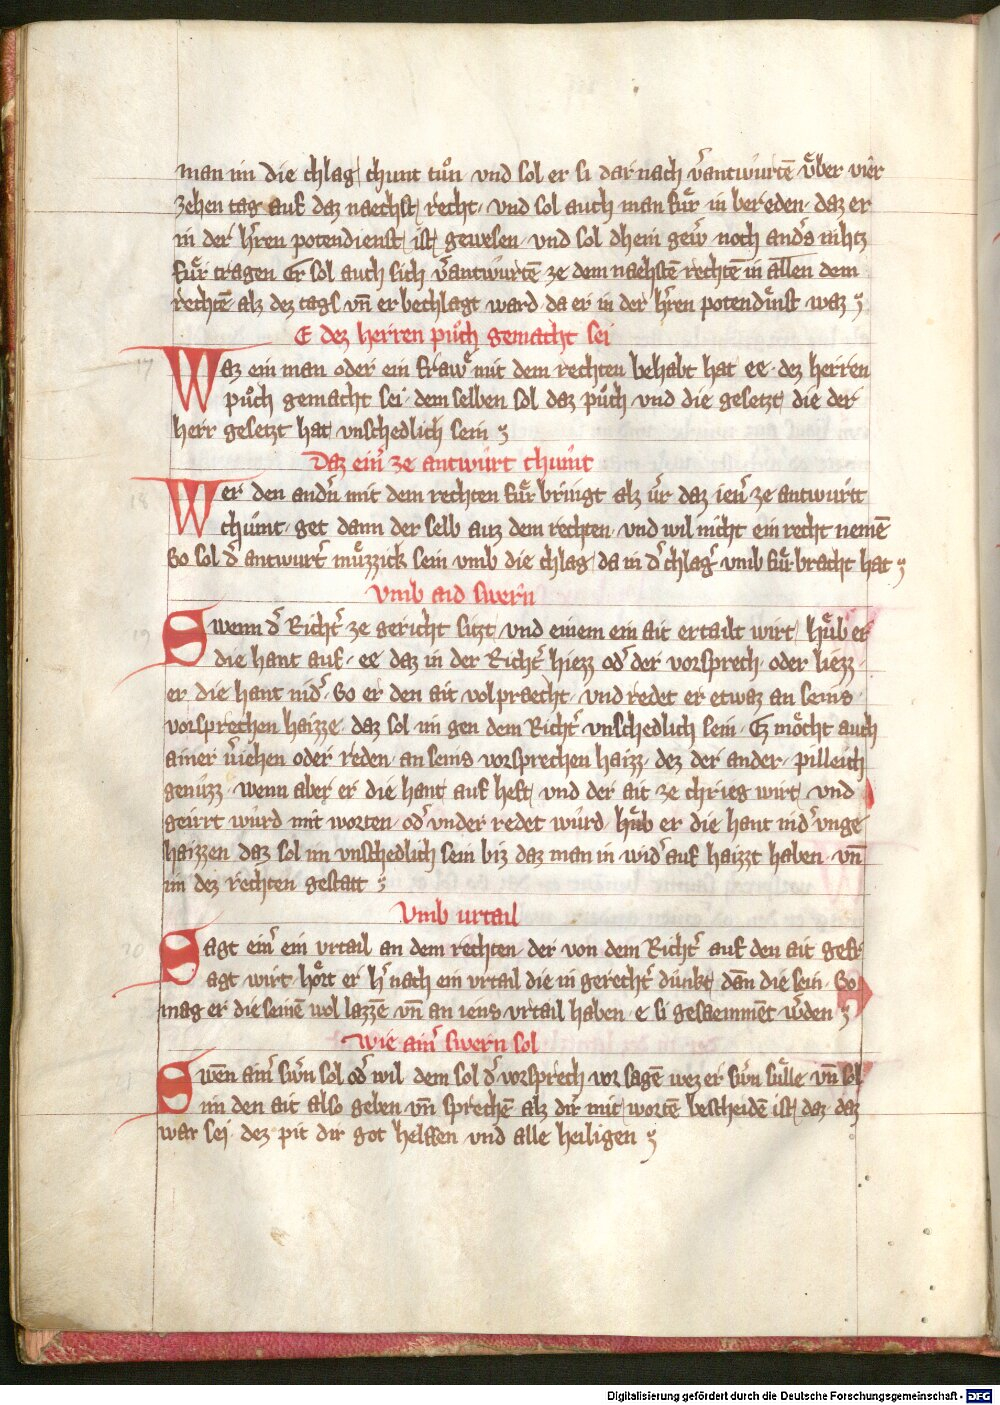 man im die chlag chunt tuͦn vnd sol er si dar nach v̄antwurtē vͤber vier
zehen tag auf daz naechst recht · vnd sol auch man fuͤr in bereden · daz er
in der h̄ren potendienst ist gewesen · vnd sol dhein gew̄ noch and̄s nihtz
fuͤr tragen Er sol auch sich v̄antwurtē ze dem naehstē rechtē in allen dem
rechtē alz dez tags vn̄ er bechlagt ward · da er in der h̄ren potendinst waz
E dez herren puͦch gemacht sei
17 Waz ein man oder ein fraw mit dem rechten behabt hat ee · dez herren
puͦch gemacht sei · dem selben sol daz puͦch · vnd die gesetzt die der
herr gesetzt hat vnschedlich sein
Daz ein̄ ze antwurt chumt
18 Wer den andn̄ mit dem rechten fuͤr bringt alz v̄r daz ien̄ ze antwurtt
chumt · get dann der selb auz dem rechten · vnd wil nicht ein recht nemē
So sol d̄ antwurt̄ muͤzzick sein vmb die chlag da in d̄ chlaḡ vmb fuͤrbracht hat
Vmb aid swern
19 Swenn d̄ Richt̄ ze gericht sitzt vnd einem ein ait ertailt wirt huͤb er
die hant auf · ee daz in der Richt̄ hiezz od̄ der vorsprech · oder liezz ·
er die hant nid̄ · So er den ait volpraecht · vnd redet er etwaz an seins
vorsprechen haizze · daz sol im gen dem Richt̄ vnschedlich sein · Ez moͤcht auch
ainer v̄iehen oder reden · an seins vorsprechen haizz · dez der ander · pilleich
genuzz · wenn aber er die hant auf heft vnd der ait ze chrieg wirt vnd
geirrt wurd mit worten · od̄ vnder redet wurd · huͤb er die hant nid̄ vnge
haizzen daz sol im vnschedlich sein biz daz man in wid̄ auf haizzt haben · vn̄
im dez rechten gestatt
Vmb urtail
20 Sagt ein̄ ein vrtail an dem rechten · der von dem Richt̄ auf den ait gefr
agt wirt hoͤrt er h̄ nach ein vrtail die in gerecht̄ dunkt dan̄ die sein · So
mag er die seinē wol lazzē vn̄ an iens vrtail haben · e si gesaemmēt w̄den
Wie aim̄ swern sol
Swen̄ aim̄ sw̄n sol od̄ wil dem sol d̄ vorsprech vor sagē wez er sw̄n suͤlle vn̄ sol
im den ait also geben vn̄ sprechē alz dir mit wortē bescheidē ist daz daz
war sei · dez pit dir got helffen vnd alle heiligen
Digitalisierung gefördert durch die Deutsche Forschungsgemeinschaft - DFG